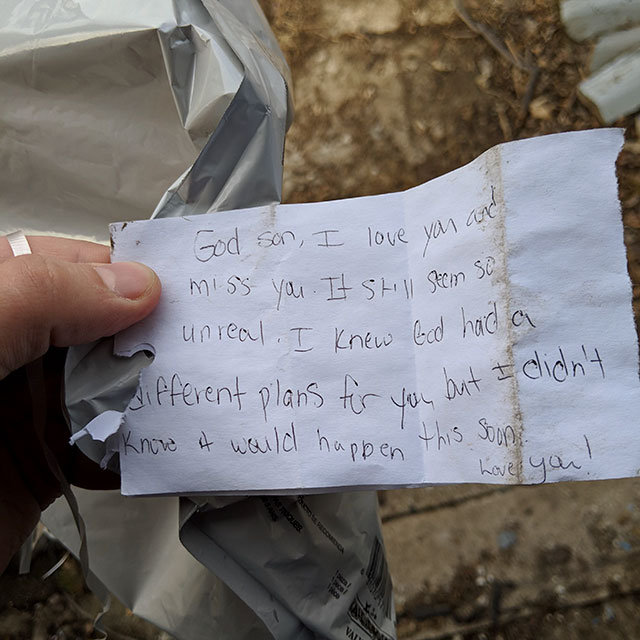 God son, I love you and
miss you. It still seem so
unreal. I knew God had a
different plans for you but I didn't
know it would happen this soon.
Love you!